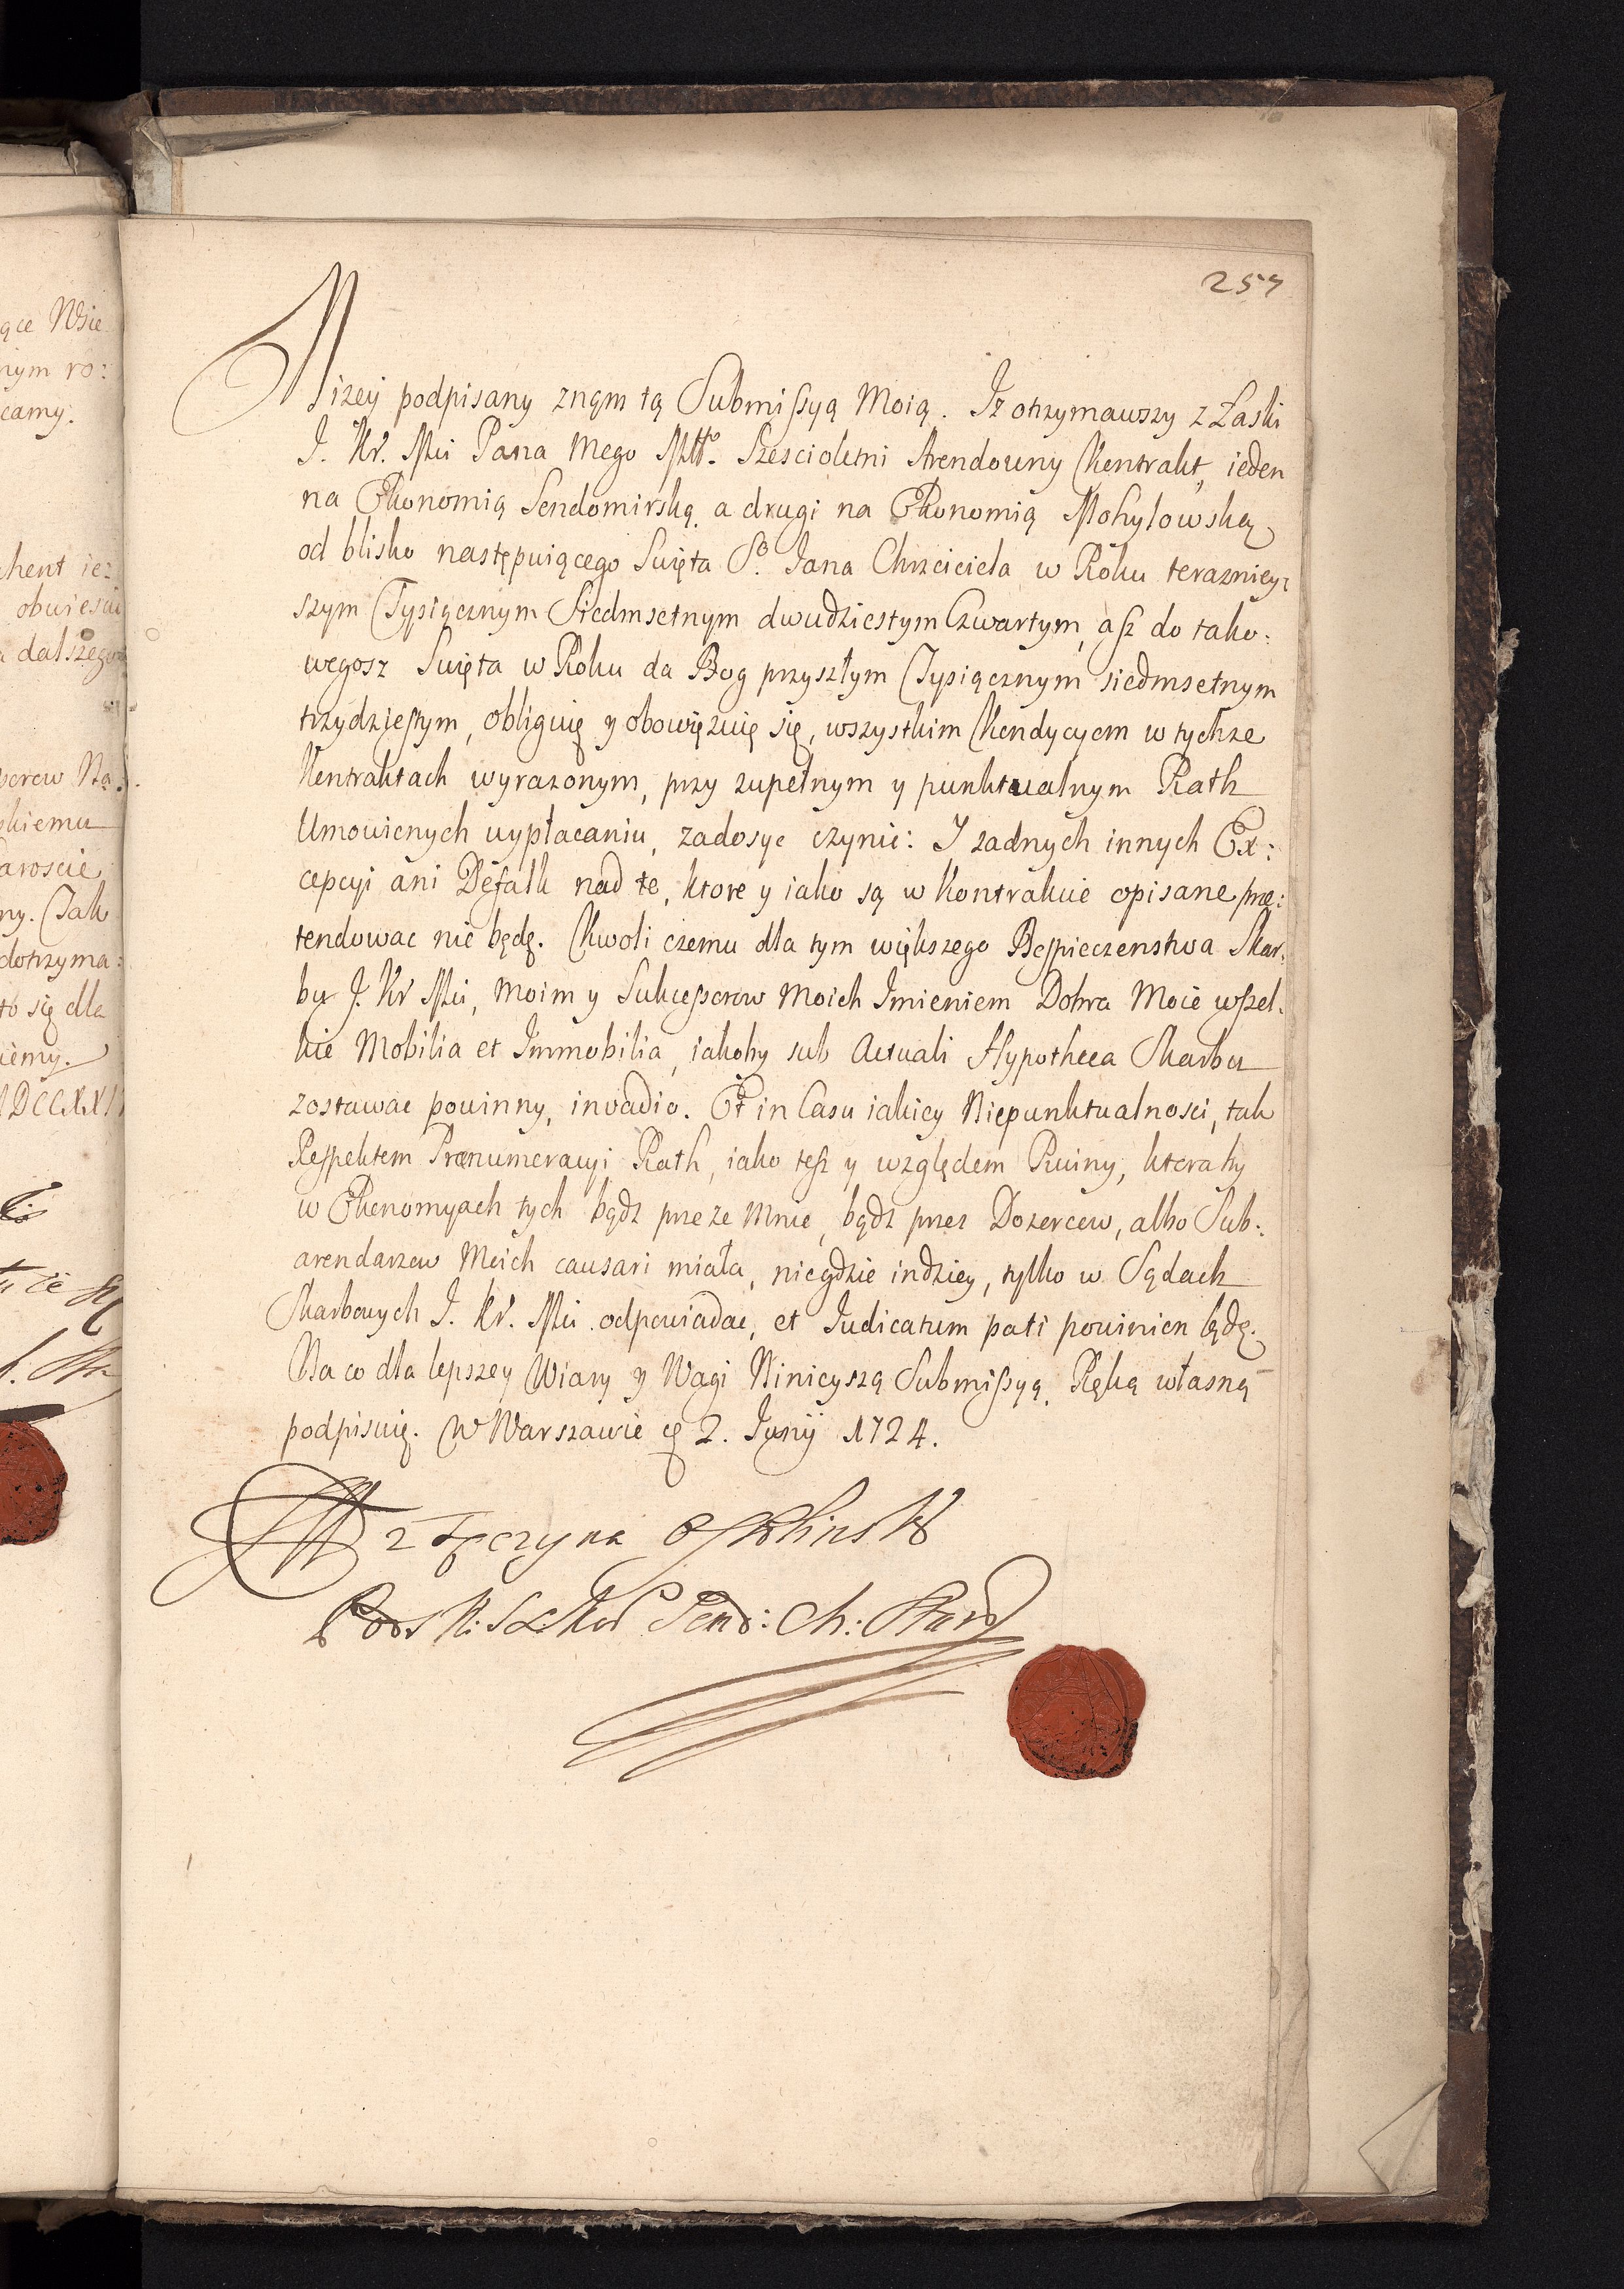 257
Niżey podpisany znąm tą Submissyą Moią. Iz otrzymawszy z Łaski
J. Kr. Mci Pana Mego Mttº. Szescioletni Arendowny Kontrakt, ieden
na Ekonomią Sendomirską, a drugi na Ekonomią Mohylowską
od blisko następuiącego Swięta Sº. Jana Chrzciciela w Roku terazniey:
szym Tysiącznym Siedmsetnym dwudziestym Czwartym, asz do tako:
wegosz Swięta w Roku da Bog przyszłym Tysiącznym siedmsetnym
trzydziestym, obliguię y obowięzuię się, wszystkim Kondycyom w tychze
Kontraktach wyrazonym, przy zupełnym y punktualnym Rath
Umowionych wypłacaniu, zadosyc czynic: I zadnych innych Ex:
cepcyi ani Defalk nad te, ktore y iako są w Kontrakcie opisane præ:
tendowac nie będę. Kwoli czemu dla tym większego Bespieczenstwa Skar:
bu J. Kr Mci, moim y Sukcessorow Moich Imieniem Dobra Moie wszel:
kie Mobilia et Immobilia, iakoby sub Actuali Hypotheca Skarbu
zostawac powinny, invadio. Et in Casu iakiey Niepunktualnosci, tak
Respektem Prænumeracyi Rath, iako tesz y względem Ruiny, ktoraby
w Ekonomyach tych bądz przeze mnie, bądz przez Dozorcow, albo Sub:
arendarzow Moich causari miała, niegdzie indziey, tylko w Sądach
Skarbowych J. Kr. Mci odpowiadac, et Iudicatum pati powinien będę.
Na co dla lepszey Wiary y Wagi Ninieyszą Submissyą, Ręką własną
podpisuię. W Warszawie 2. Junij 1724.
z Tęczyna Ossolinski
Send: Ch: Star